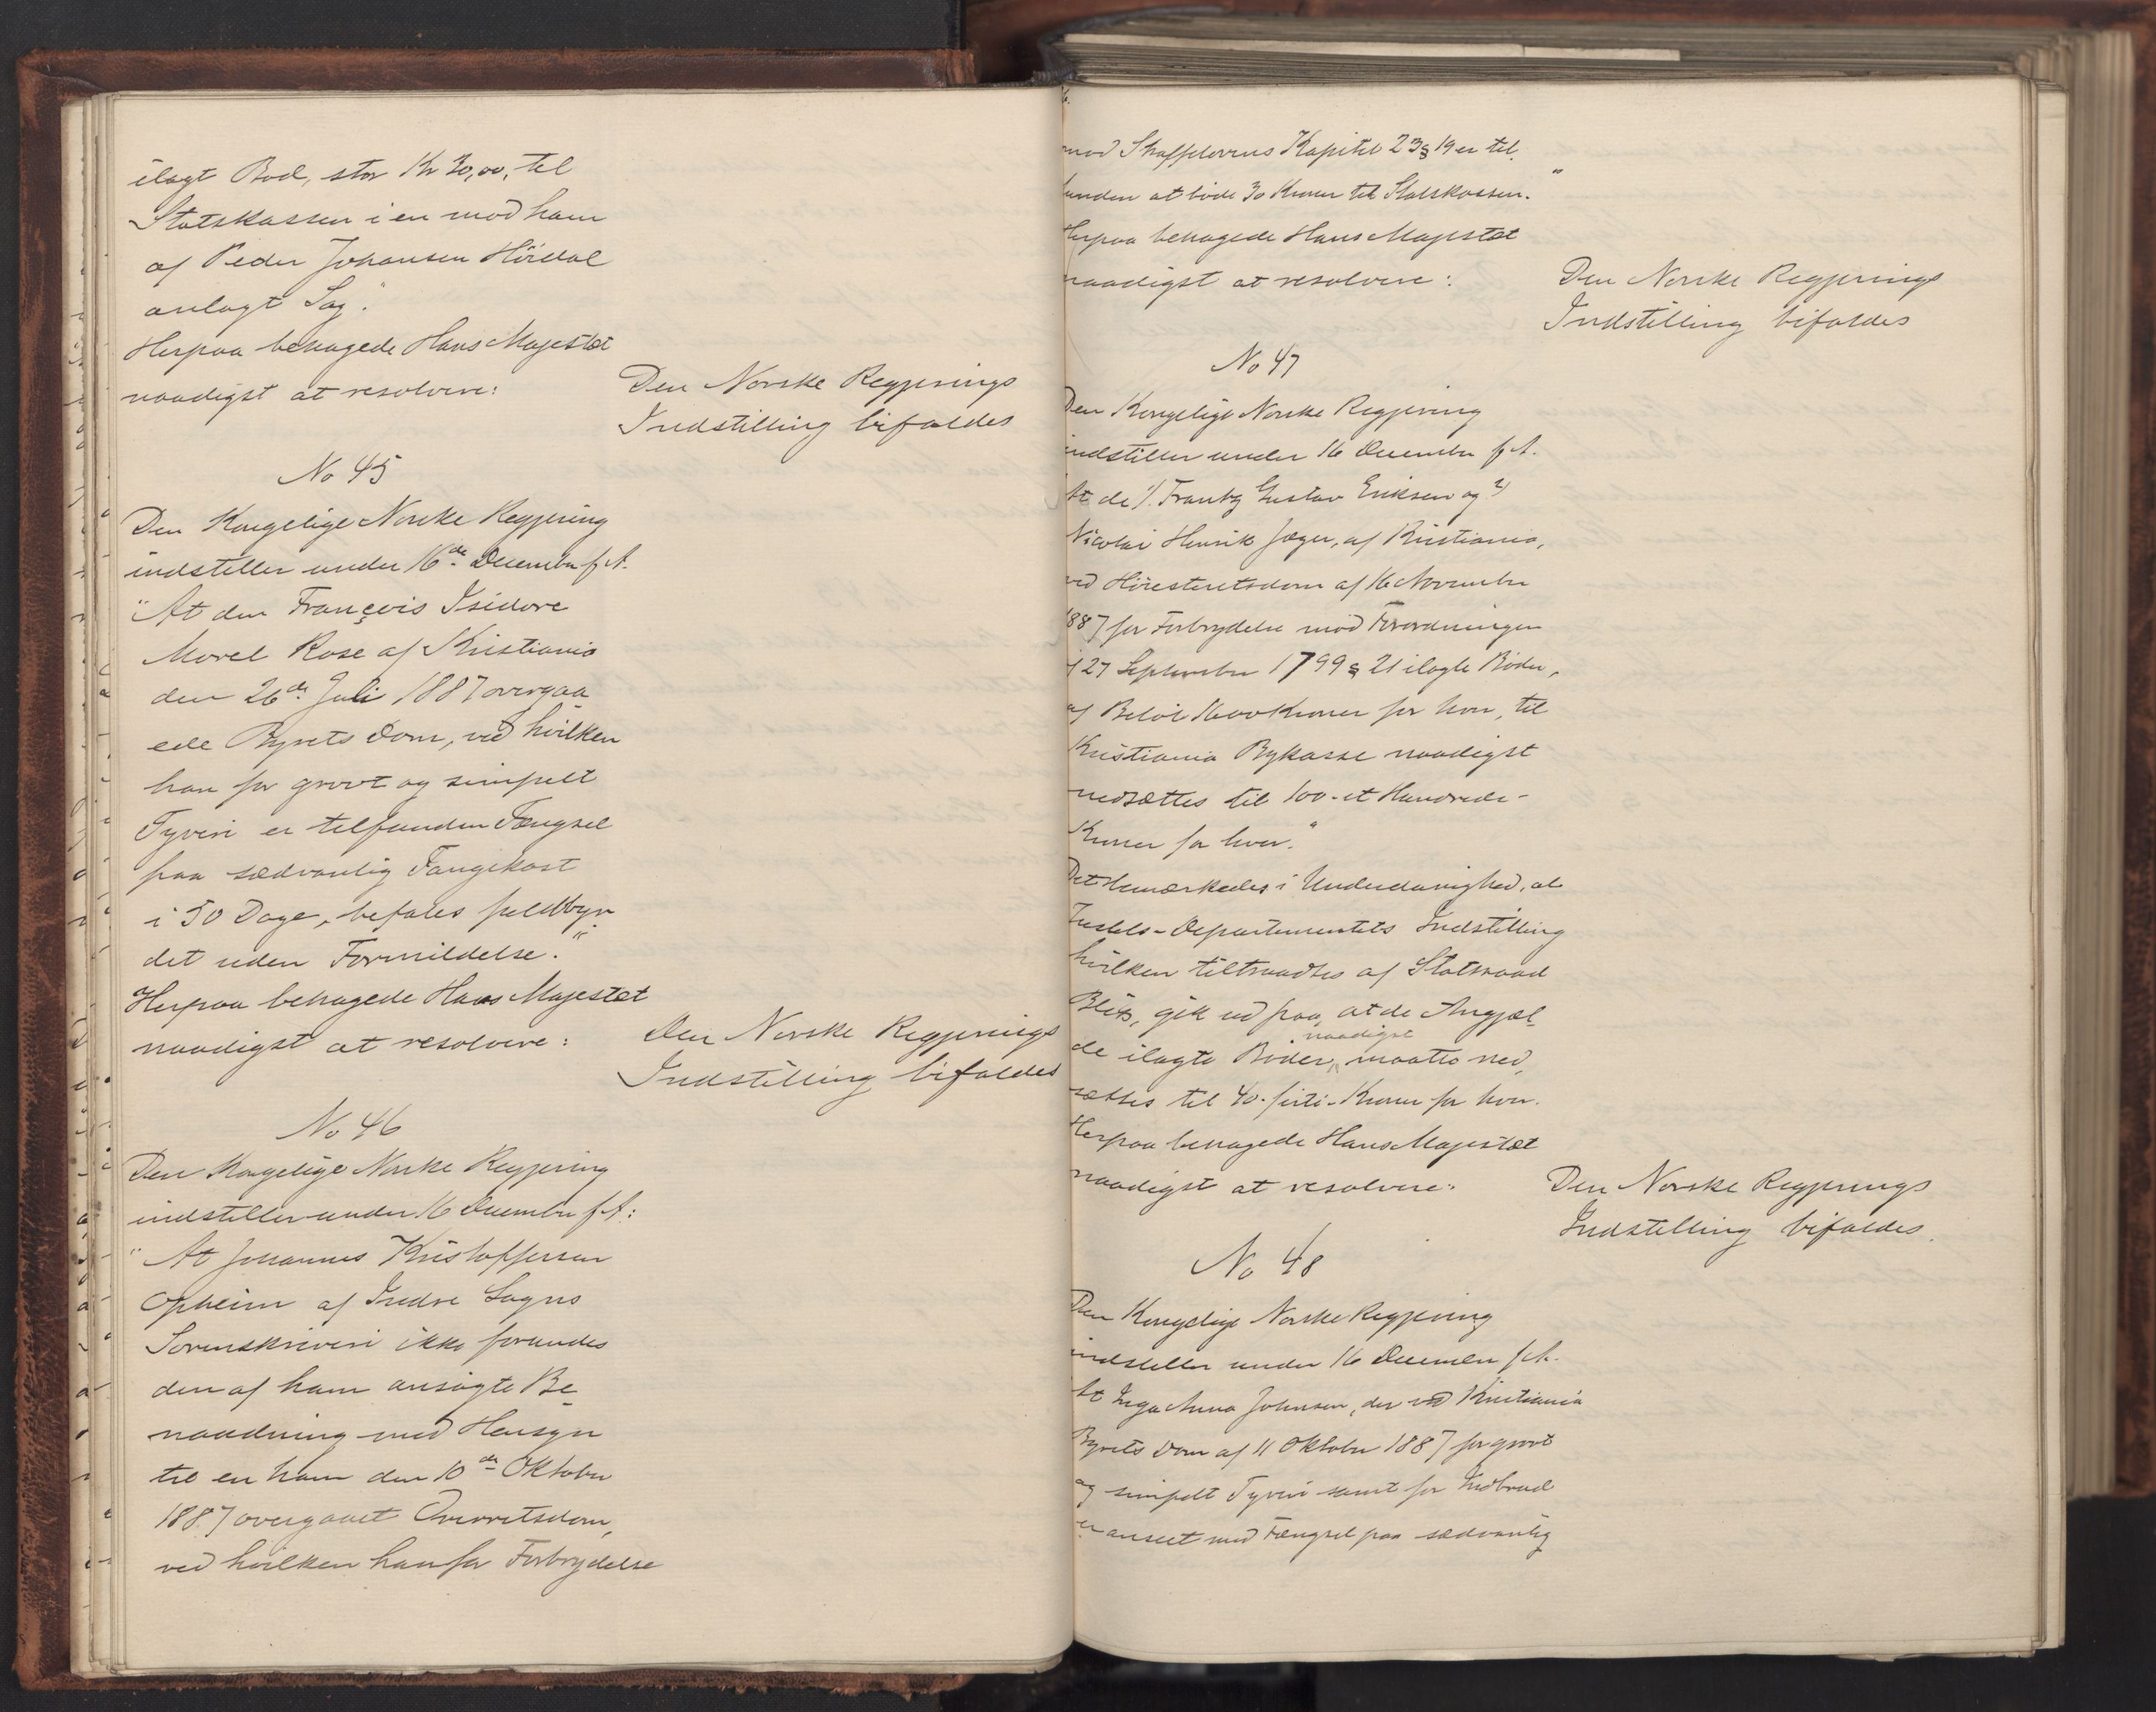 ilagt Bod, stor Kr 30,00, til
Statskassen i en mod ham
af Peder Johansen Hördal
anlagt Sag."
Herpaa behagede Hans Majestæt
naadigst at resolvere:
Den Norske Regjerings
Indstilling bifaldes
No 45
Den Kongelige Norske Regjering
indstiller under 16de December f. A.
"At den François Isidore
Morel Rose af Kristiania
den 26de Juli 1887 overgaa
ede Byrets Dom, ved hvilken
han for grovt og simpelt
Tyveri er tilfunden Fængsel
paa sædvanlig Fangekost
i 50 Dage, befales fuldbyr
det uden Formildelse."
Herpaa behagede Hans Majestæt
naadigst at resolvere:
Den Norske Regjerings
Indstilling bifaldes
No 46
Den Kongelige Norske Regjering
indstiller under 16 December f. A:
"At Johannes Kristoffersen
Opheim af Indre Sogns
Sorenskriveri ikke forundes
den af ham ansögte Be
naadning med Hensyn
til en ham den 10de Oktober
1887 overgaaet Overretsdom,
ved hvilken han for Forbrydelse
mod Straffelovens Kapitel 23 § 19 er til
funden at böde 30 Kroner til Statskassen."
Herpaa behagede Hans Majestæt
naadigst at resolvere:
Den Norske Regjerings
Indstilling bifaldes
No 47
Den Kongelige Norske Regjering
indstiller under 16 December f. A.
At de 1/. Frantz Gustav Eriksen og 2/
Nicolai Henrik Jæger, af Kristiania,
ved Höiesteretsdom af 16 November
1887 for Forbrydelse mod Forordningen
af 27 September 1799 § 21 ilagte Böder,
af Belöb 1600 Kroner for hver, til
Kristiania Bykasse naadigst
nedsættes til 100 - et Hundrede -
Kroner for hver."
Det bemærkedes i Underdanighed, at
Justits-Departementets Indstilling
hvilken tiltraadtes af Statsraad
Blix, gik ud paa, at de Angjæl
de ilagte Böder, naadigst maatte ned
sættes til 40 - firti - Kroner for hver.
Herpaa behagede Hans Majestæt
naadigst at resolvere:
Den Norske Regjerings
Indstilling bifaldes.
No 48
Den Kongelige Norske Regjering
indstiller under 16 December f. A.
At Inga Anna Johnsen, der ved Kristiania
Byrets Dom af 11 Oktober 1887 for grovt
og simpelt Tyveri samt for Indbrud
er anseet med Fængsel paa sædvanlig